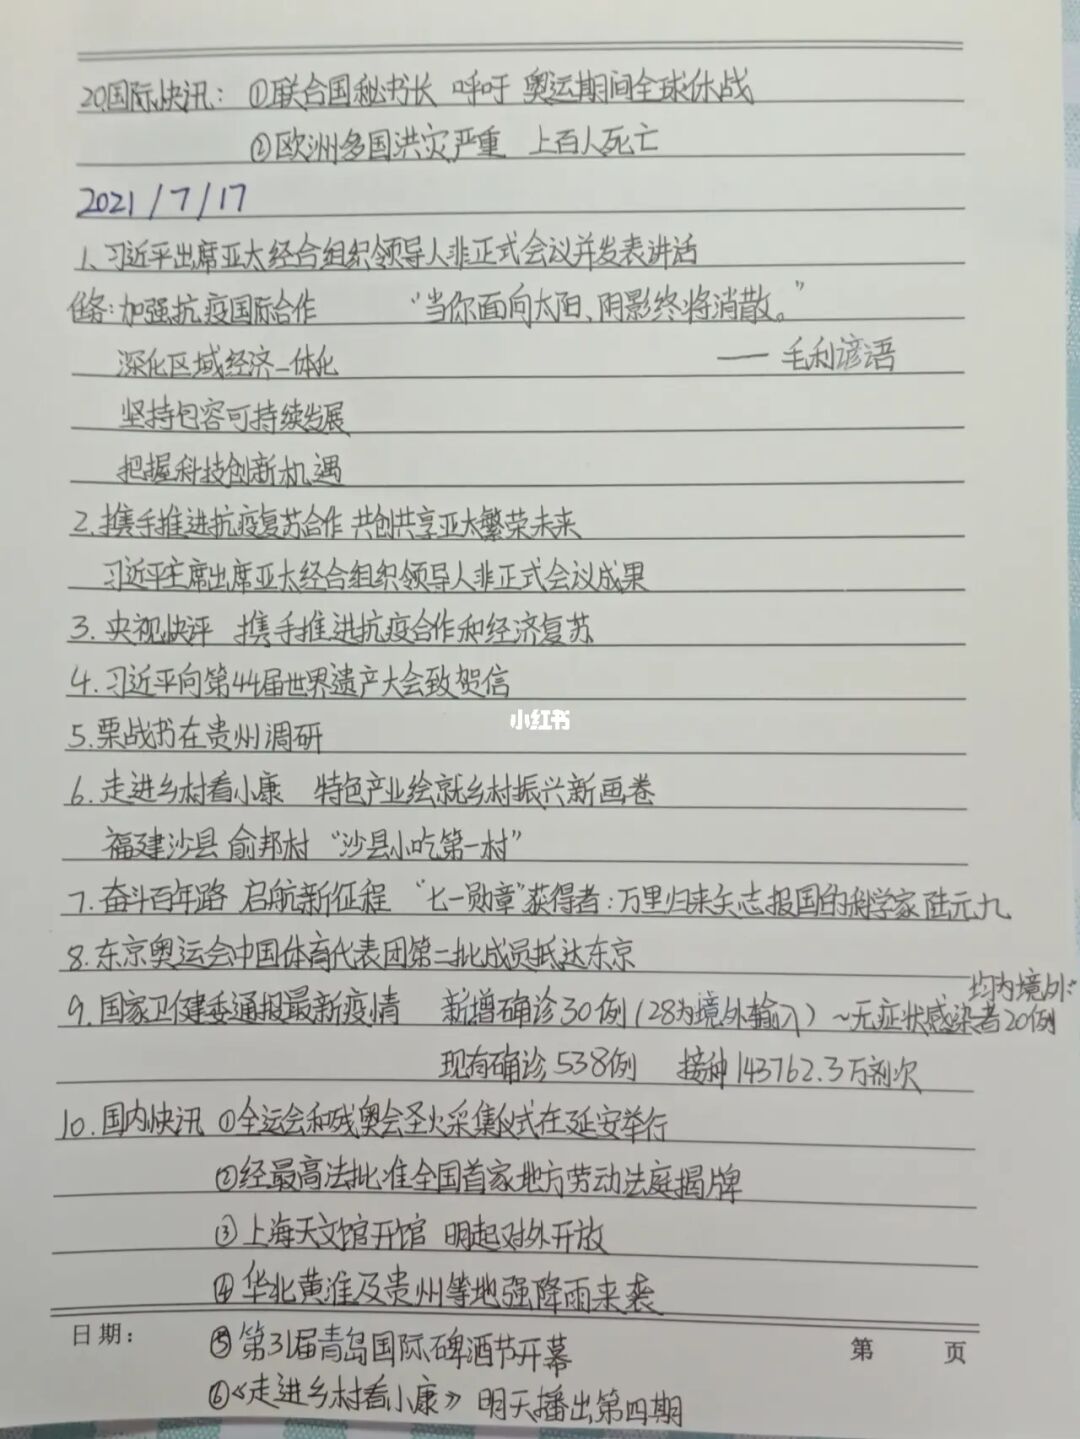 20.国际快讯：①联合国秘书长 呼吁 奥运期间全球休战
②欧洲多国洪灾严重 上百人死亡
2021/7/17
1、习近平出席亚太经合组织领导人非正式会议并发表讲话
任务：加强抗疫国际合作 “当你面向太阳、阴影终将消散。”
深化区域经济一体化 —— 毛利谚语
坚持包容可持续发展
把握科技创新机遇
2.携手推进抗疫复苏合作 共创共享亚太繁荣未来
习近平主席出席亚太经合组织领导人非正式会议成果
3.央视快评 携手推进抗疫合作和经济复苏
4.习近平向第44届世界遗产大会致贺信
小红书
5.栗战书在贵州调研
6.走进乡村看小康 特色产业绘就乡村振兴新画卷
福建沙县 俞邦村 “沙县小吃第一村”
7.奋斗百年路 启航新征程 “七一勋章”获得者：万里归来矢志报国的科学家陆元九
8.东京奥运会中国体育代表团第二批成员抵达东京
均为境外
9.国家卫健委通报最新疫情 新增确诊30例（28为境外输入）~无症状感染者20例
现有确诊538例 接种143762.3万剂次
10.国内快讯 ①全运会和残奥会圣火采集仪式在延安举行
②经最高法批准全国首家地方劳动法庭揭牌
③上海天文馆开馆 明起对外开放
④华北黄淮及贵州等地强降雨来袭
日期：
⑤第31届青岛国际碑酒节开幕
第 页
⑥《走进乡村看小康》明天播出第四期